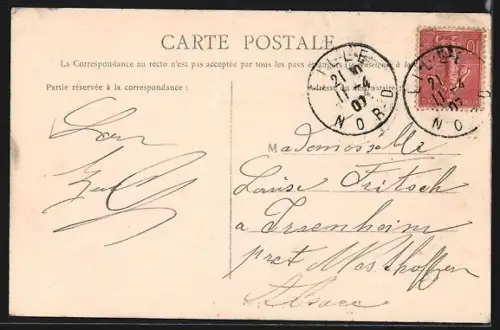 CARTE POSTALE
La Correspondance au recto n'est pas acceptée par tous les pays étrangers (Se renseigner à la Poste)
Partie réservée à la correspondance :
Adresse du destinataire
LILLE
21 50
11-4
07
NORD
LILLE
21
11-4
07
NORD
10
Mademoiselle
Louise Fritsch
a Irsenheim
pret Mosthoffen
Alsace